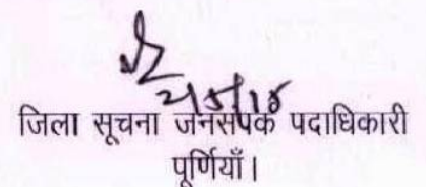 जिला सूचना जनसंपर्क पदाधिकारी
पूर्णियाँ।